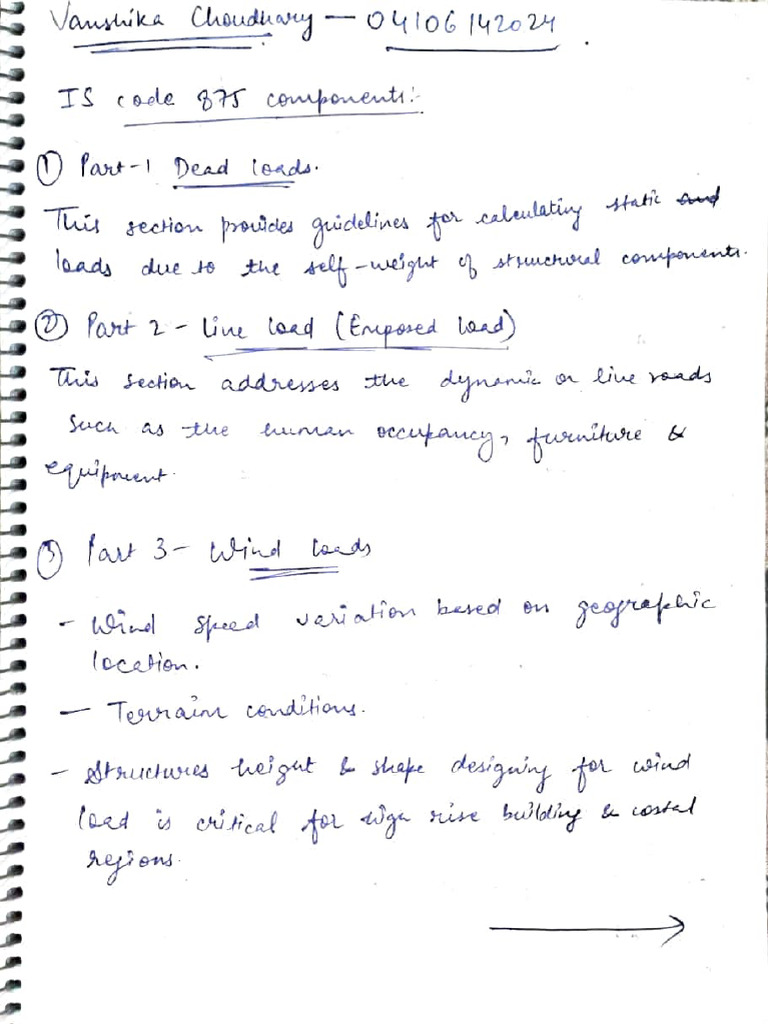 Vanshika Choudhary — 04106142024
IS code 875 components:-
① Part-1 Dead loads.
This section provides guidelines for calculating static and
loads due to the self-weight of structural components.
② Part 2 - Live load (Imposed load)
This section addresses the dynamic or live loads
such as the human occupancy, furniture &
equipment.
③ Part 3 - Wind loads
- Wind speed variation based on geographic
location.
- Terrain conditions.
- Structures height & shape designing for wind
load is critical for high rise building & costal
regions.